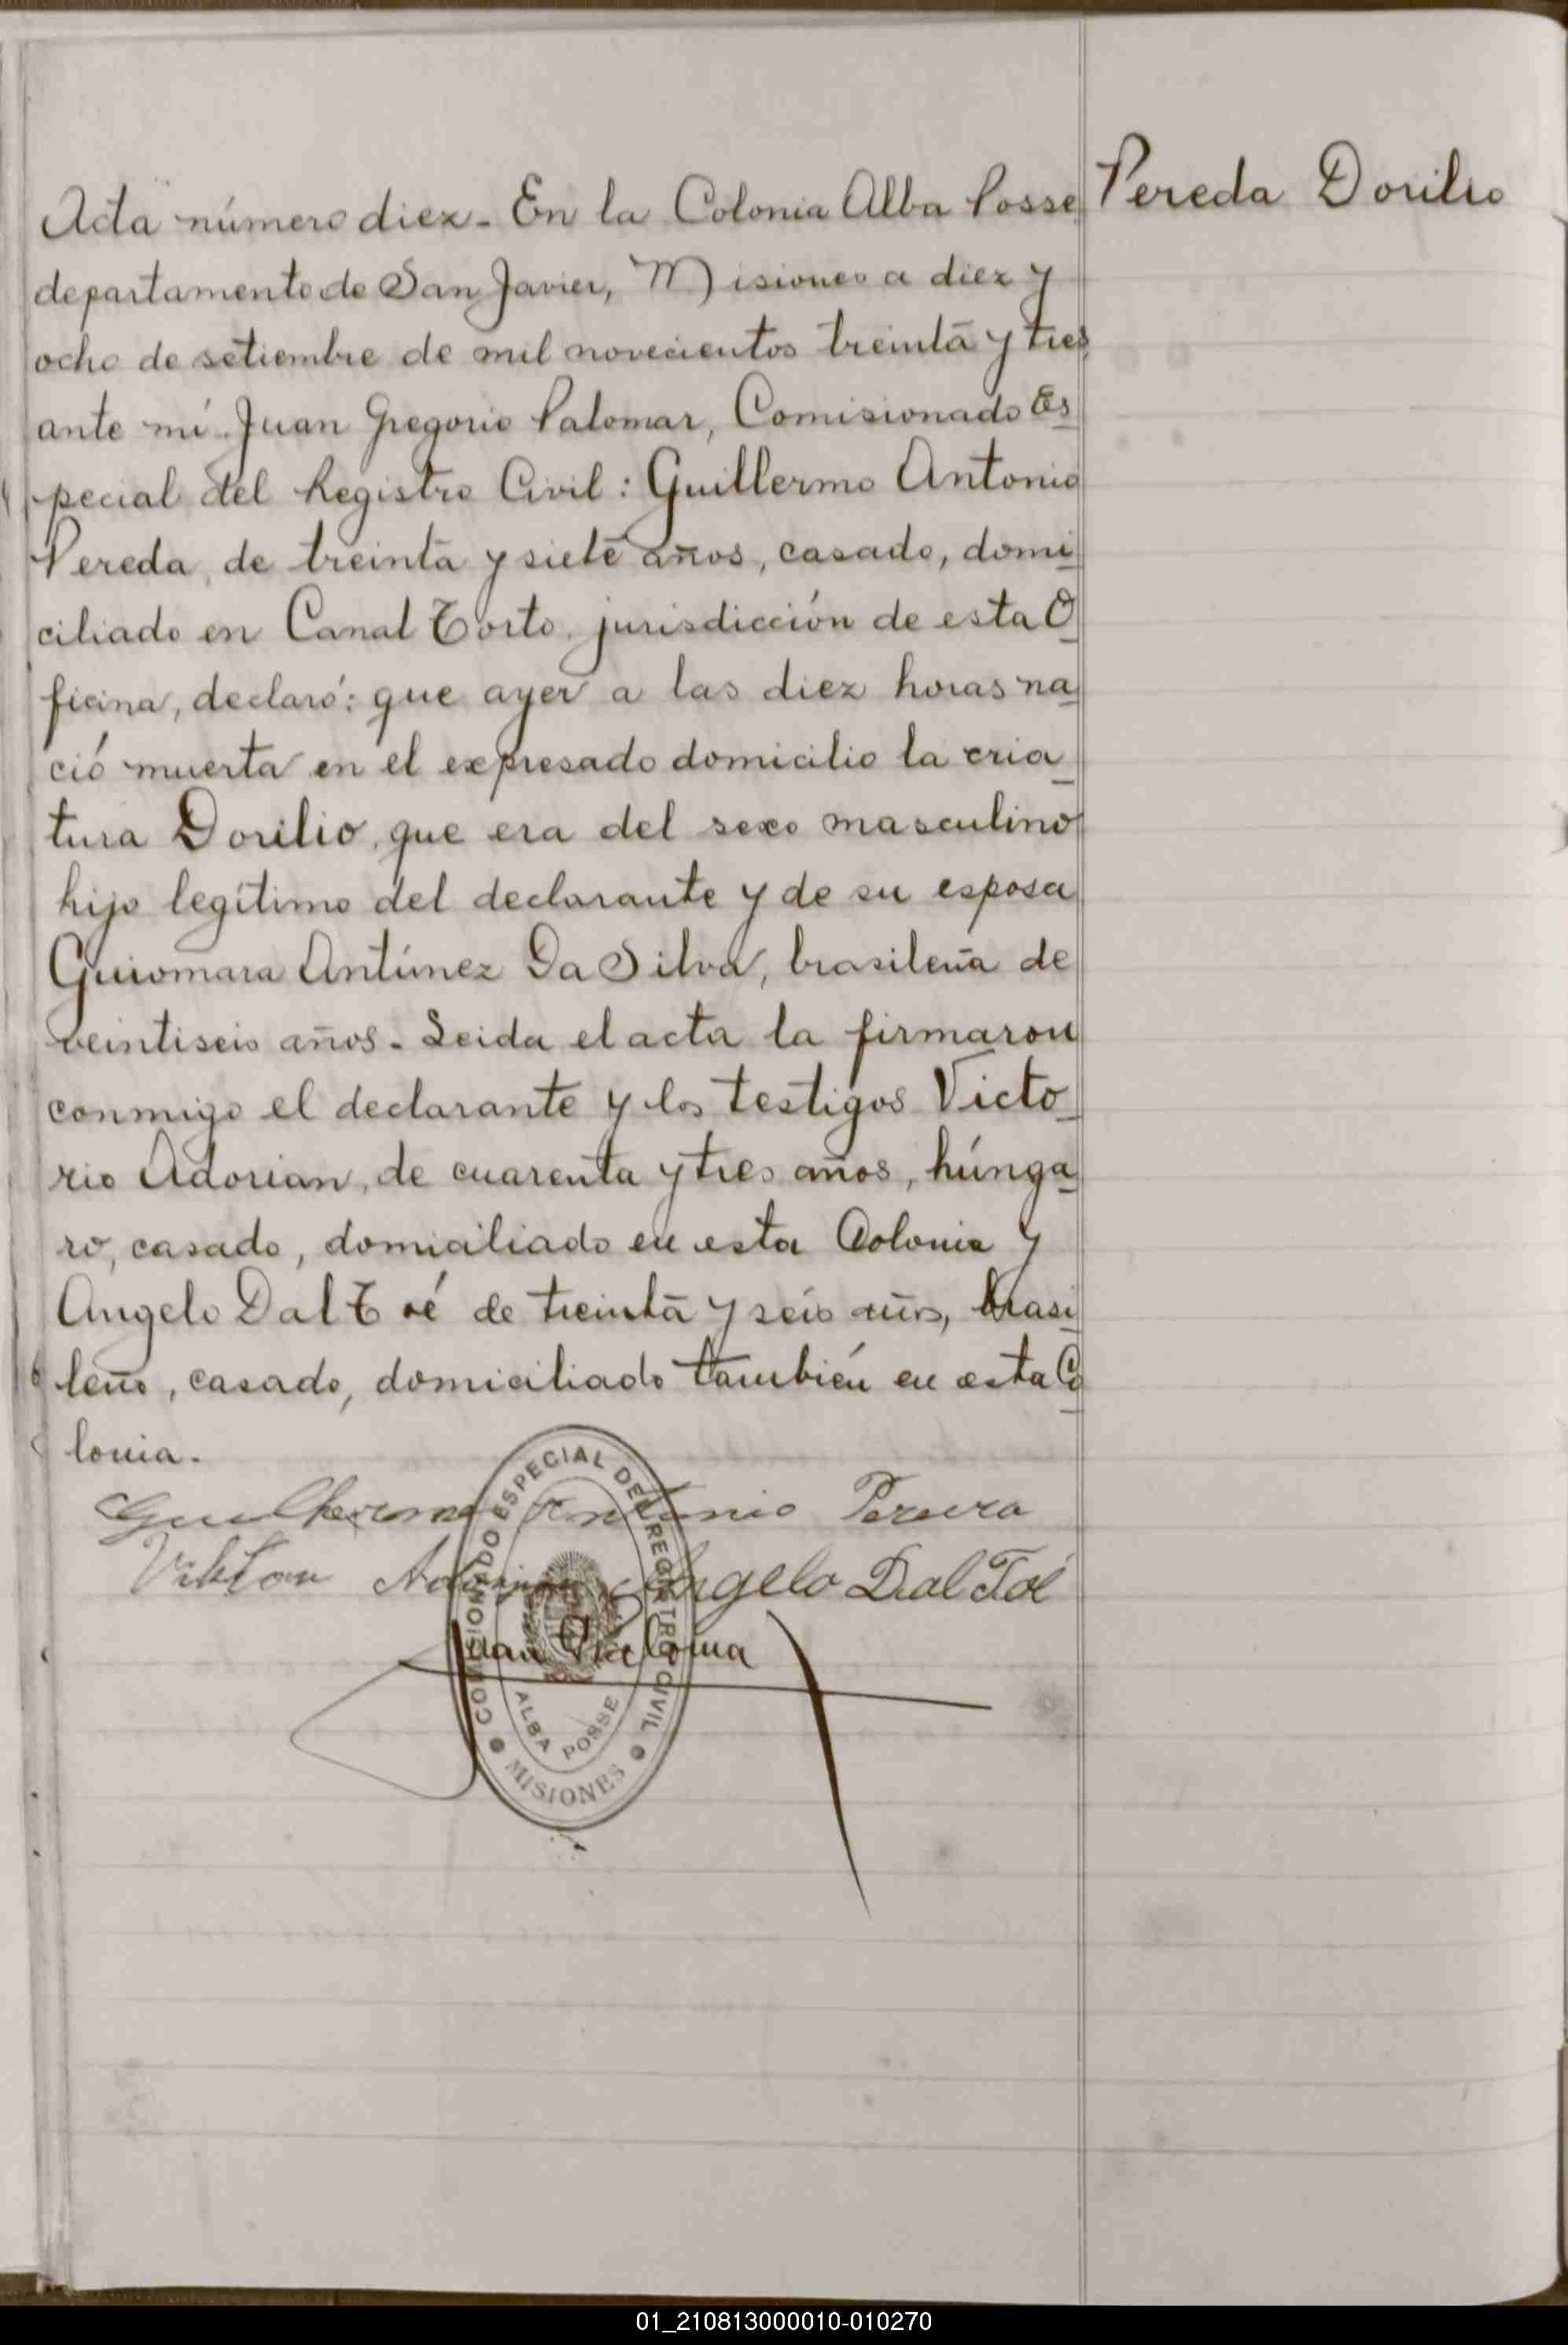 Pereda Dorilio
Acta número diez - En la Colonia Alba Posse
departamento de San Javier, Misiones a diez y
ocho de setiembre de mil novecientos treinta y tres
ante mí Juan Gregorio Palomar, Comisionado Es
pecial del Registro Civil: Guillermo Antonio
Pereda, de treinta y siete años, casado, domi
ciliado en Canal Torto, jurisdicción de esta O
ficina, declaró: que ayer a las diez horas na
ció muerta en el expresado domicilio la cria
tura Dorilio, que era del sexo masculino
hijo legítimo del declarante y de su esposa
Guiomara Antúnez Da Silva, brasileña de
veintiseis años - Leida el acta la firmaron
conmigo el declarante y los testigos Victo
rio Adorian, de cuarenta y tres años, húnga
ro, casado, domiciliado en esta Colonia y
Angelo Dal T é de treinta y seis años, brasi
leño, casado, domiciliado también en esta Co
lonia.
Guilherme Antonio Pereira
Viktor Adorian Angelo Dal Toé
Juan Paloma
COMISIONADO ESPECIAL DEL REGISTRO CIVIL
ALBA POSSE
MISIONES
01_210813000010-010270